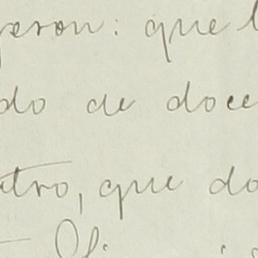 yeron: que l
do de doce
atro, que do